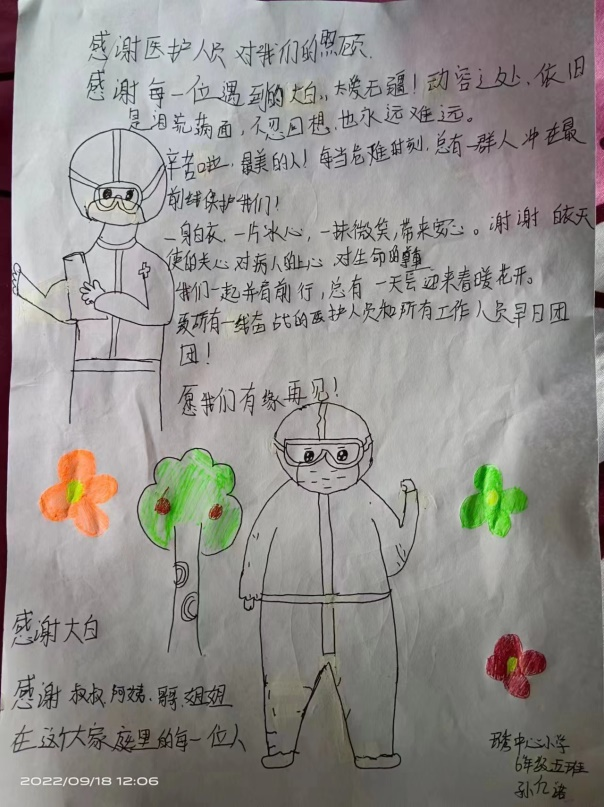 感谢医护人员对我们的照顾.
感谢每一位遇到的大白,大爱无疆!动容之处、依旧
是泪流满面,不忍回想,也永远难远。
辛苦啦,最美的人!每当危难时刻,总有一群人冲在最
前线保护我们!
一身白衣,一片冰心,一抹微笑,带来安心。谢谢 白衣天
使的关心 对病人的上心 对生命的尊重
我们一起并肩前行,总有一天会迎来春暖花开。
所有一线奋战的医护人员和所有工作人员早日团
团!
愿我们有缘再见!
感谢大白
感谢 叔叔.阿姨.哥哥.姐姐
在这个大家庭里的每一位人
中心小学
6年级五班
孙
2022/09/18 12:06